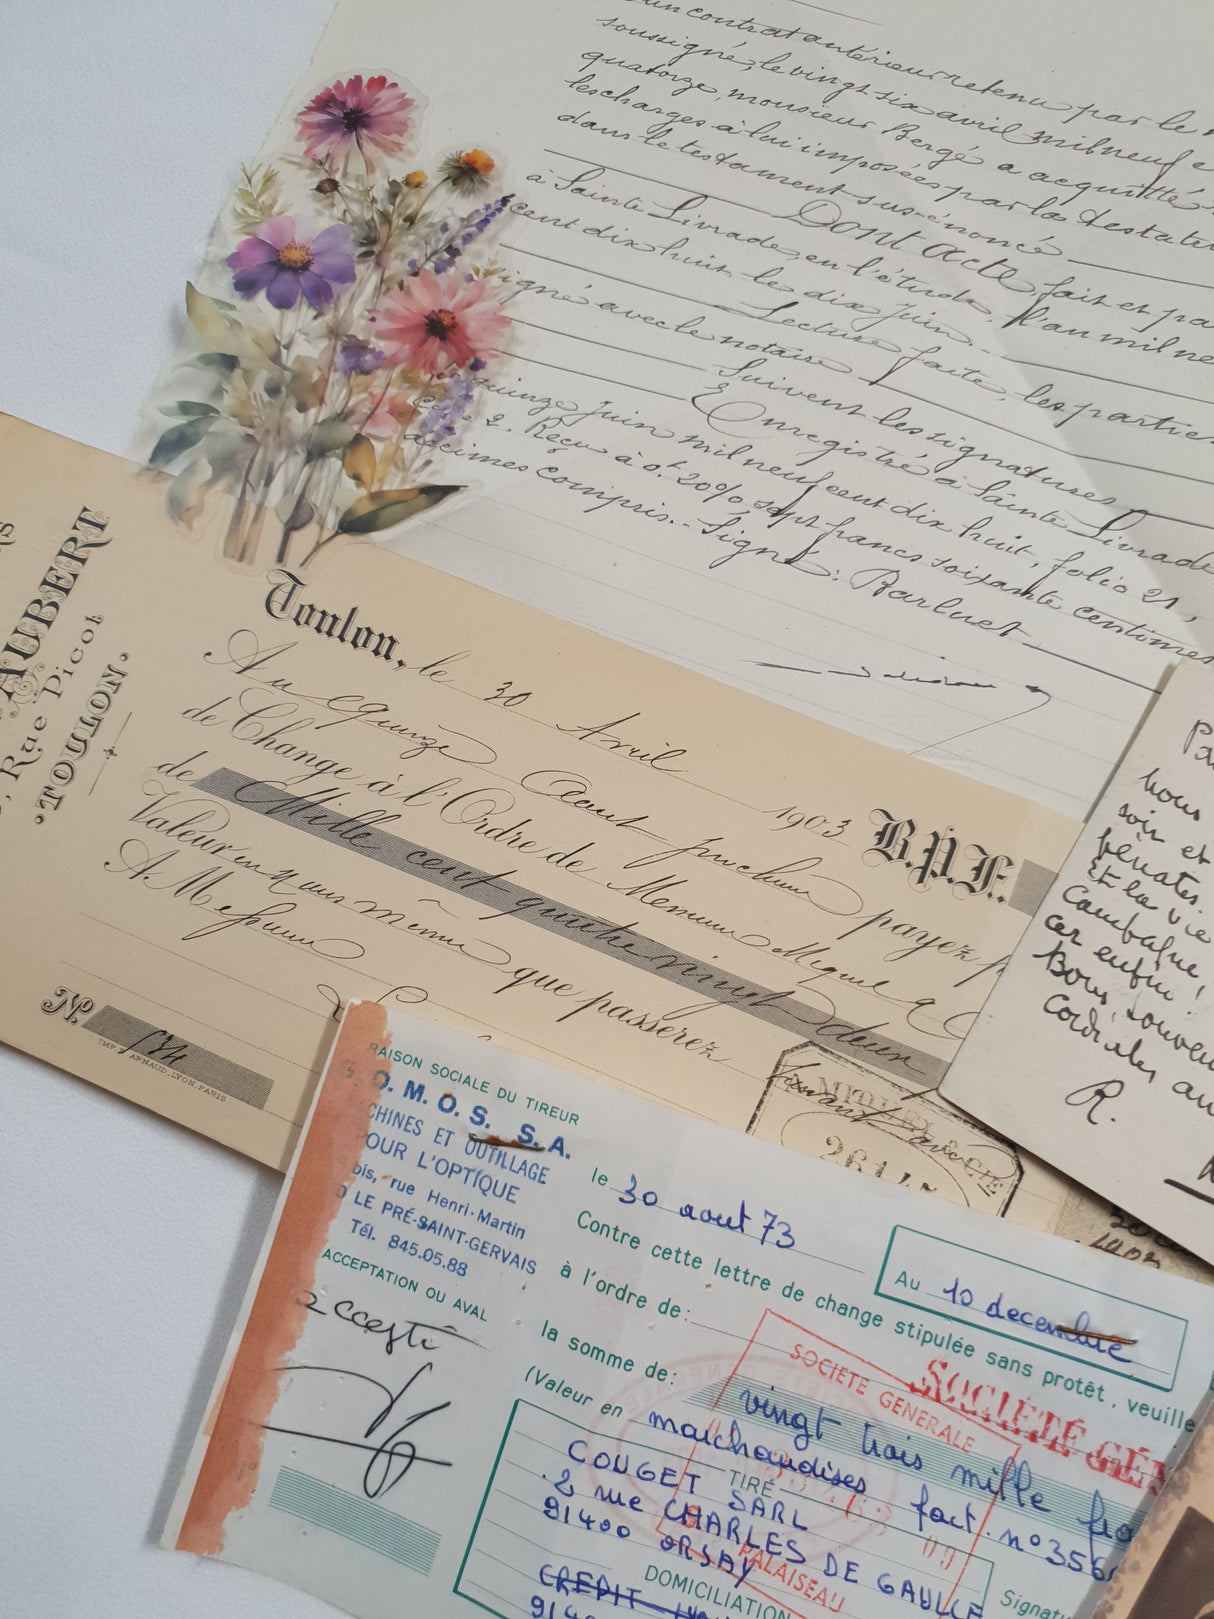 un contrat antérieur retenu par le
soussigné, le vingt-six avril mil neuf c
quatorze, monsieur Bergé a acquitté
les charges à lui imposées par la testatri
dans le testament sus-énoncé
Dont acte, fait et pa
à Sainte Livrade, en l'étude, l'an mil ne
cent dix huit le dix juin
Lecture faite, les parties
signé avec le notaire
Suivent les signatures
Enregistré à Sainte Livrade
quinze juin mil neuf cent dix huit, folio 21,
case 2. Reçu à 0f. 20% sept francs soixante centimes
décimes compris. Signé: Barluet
AUBERT
, Rue Picot
TOULON.
Toulon, le 30 Avril 1903 B.P.F.
Au quinze Aout prochain payez
de Change à l'Ordre de Messieurs Miguel &
de Mille cent quatre vingt deux
Valeur en nous mêmes que passerez
A Messieurs
No 574
IMP. ARNAUD, LYON-PARIS
MIGUEL & CIE
26145
nous
soir et
pénates.
Et la vie
campagne,
car enfin!
Bons souven
Cordiales am
R.
RAISON SOCIALE DU TIREUR
O. M. O. S. S.A.
CHINES ET OUTILLAGE
POUR L'OPTIQUE
bis, rue Henri-Martin
LE PRÉ-SAINT-GERVAIS
Tél. 845.05.88
ACCEPTATION OU AVAL
accepté
le 30 aout 73
Au 10 decembre
Contre cette lettre de change stipulée sans protêt, veuille
à l'ordre de:
SOCIÉTÉ GÉN
la somme de: vingt trois mille fra
(Valeur en marchandises fact. n° 356
SOCIETE GENERALE
PALAISEAU
TIRÉ
COUGET SARL
2 rue CHARLES DE GAULLE
91400 ORSAY
DOMICILIATION
CREDIT
914
Signatu
N°